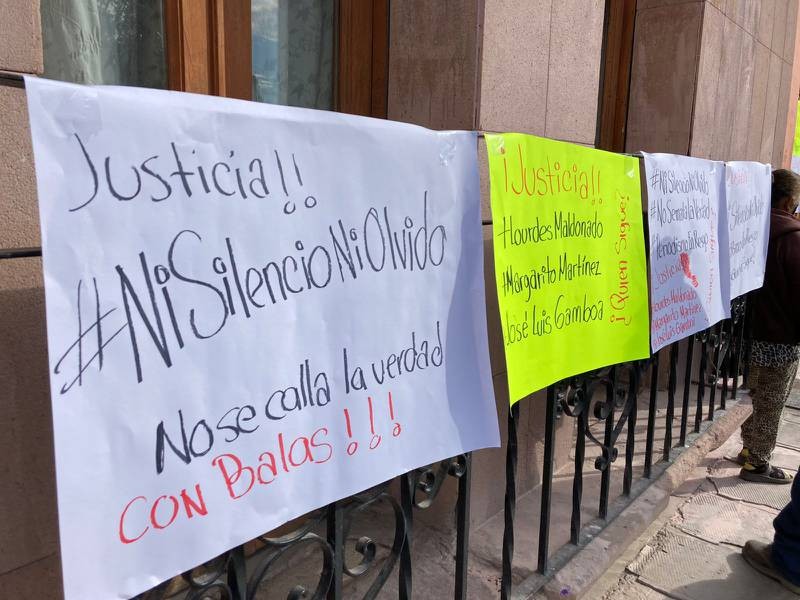 Justicia!!
#NiSilencioNiOlvido
No se calla la verdad
CON Balas!!!
¡Justicia!!
#Lourdes Maldonado
#Margarito Martínez
José Luis Gamboa
¿Quien Sigue?
#NiSilencioNiOlvido
#NoSeMatalaVerdad
#PeriodismoEnRiesgo
Justicia
Lourdes Maldonado
Margarito Martínez
José Luis Gamboa